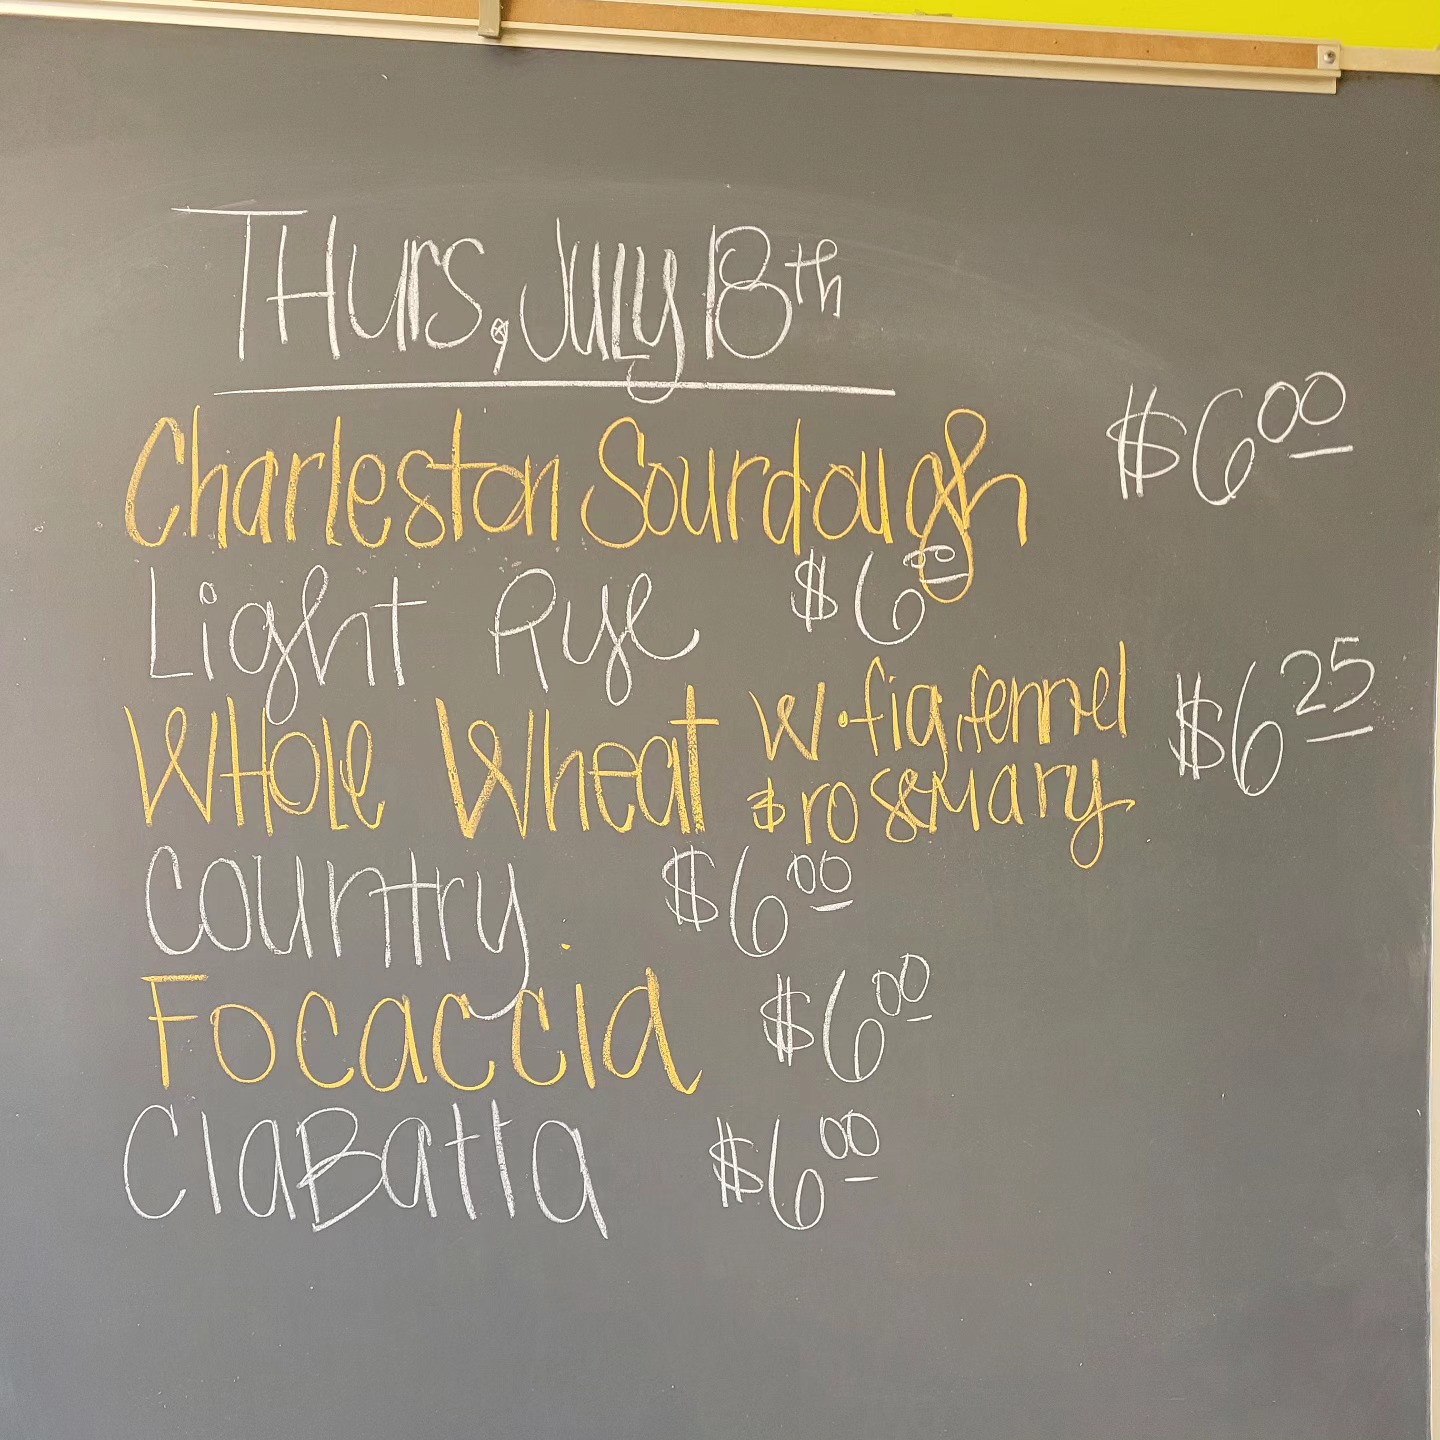 THurs, July 18th
Charleston Sourdough $6.00
Light Rye $6.00
WHole Wheat w. fig, fennel $6.25
& rosemary
Country $6.00
Focaccia $6.00
CiaBatta $6.00